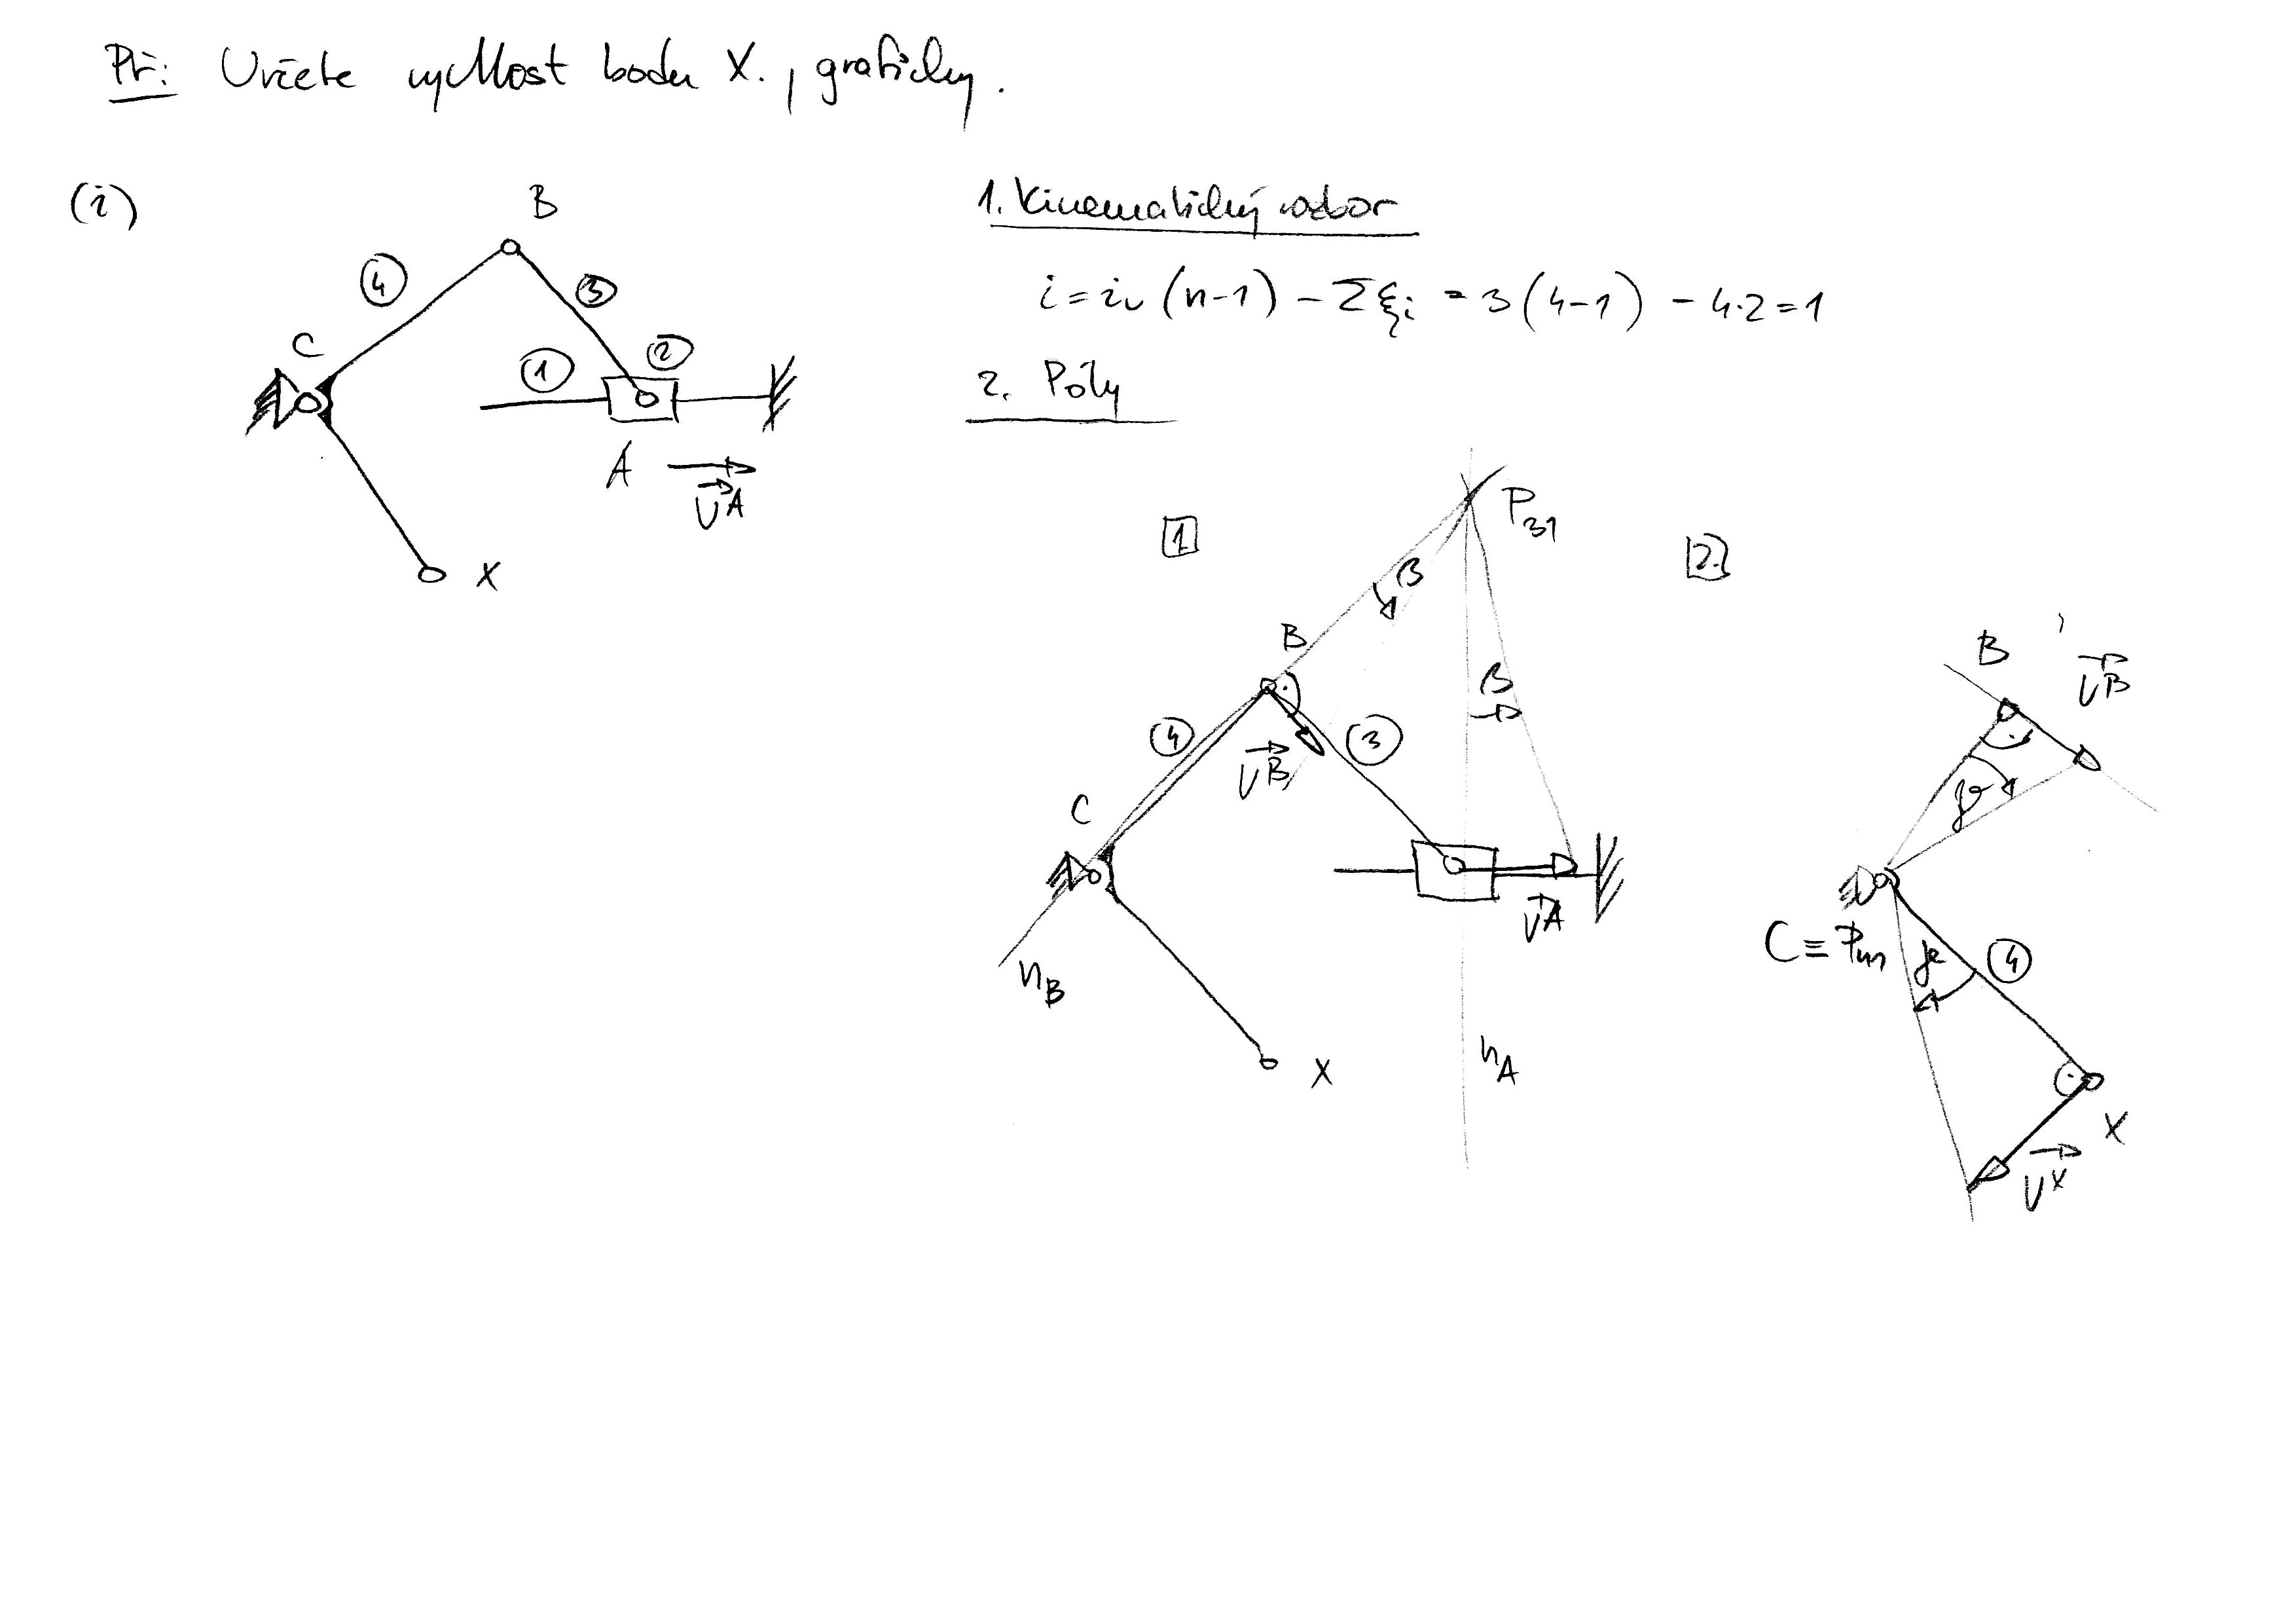 Př: Určete rychlost bodu X., graficky.
(i)
B
4
3
C
1
2
A
v^A
X
1. Kinematický rozbor
i = i_v (n-1) - Σξ_i = 3(4-1) - 4·2 = 1
2. Póly
1
P_31
β
B
β
4
3
v^B
C
v^A
n_B
n_A
X
2.
B
v^B
C ≡ P_41
4
X
v^X